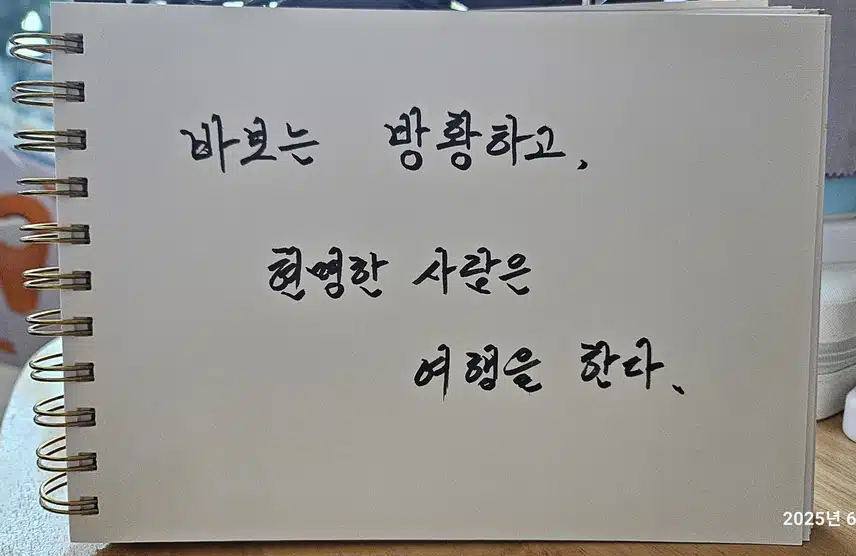 바보는 방황하고,
현명한 사람은
여행을 한다.
2025년 6